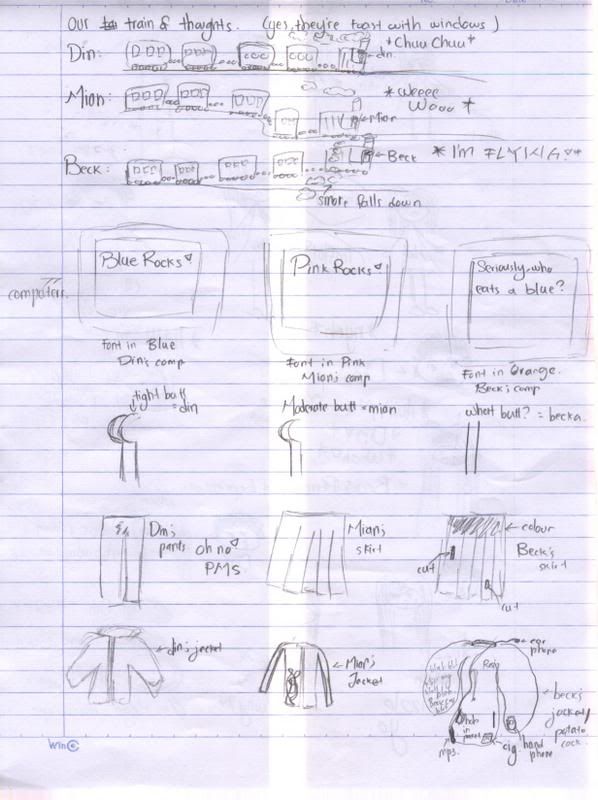 Our train of thoughts. (yes, they're toast with windows)
Din:
*Chuu Chuu*
din
Mion:
*Weeee
Wooo*
Mion
Beck:
Beck
*I'M FLYING*
smoke falls down
computers.
Blue Rocks
Pink Rocks
Seriously, who
eats a blue?
Font in Blue
Din's comp
Font in Pink
Mion's comp
Font in Orange.
Beck's comp
tight butt
= din
Moderate butt = mion
what butt? = becka.
Din's
pants oh no
PMS
Mian's
skirt
colour
Beck's
skirt
cut
cut
din's jacket
Mion's
Jacket
ear
phone
hole
in
beck's
jacket/
potato
sack.
mp3.
cig.
hand
phone
Win